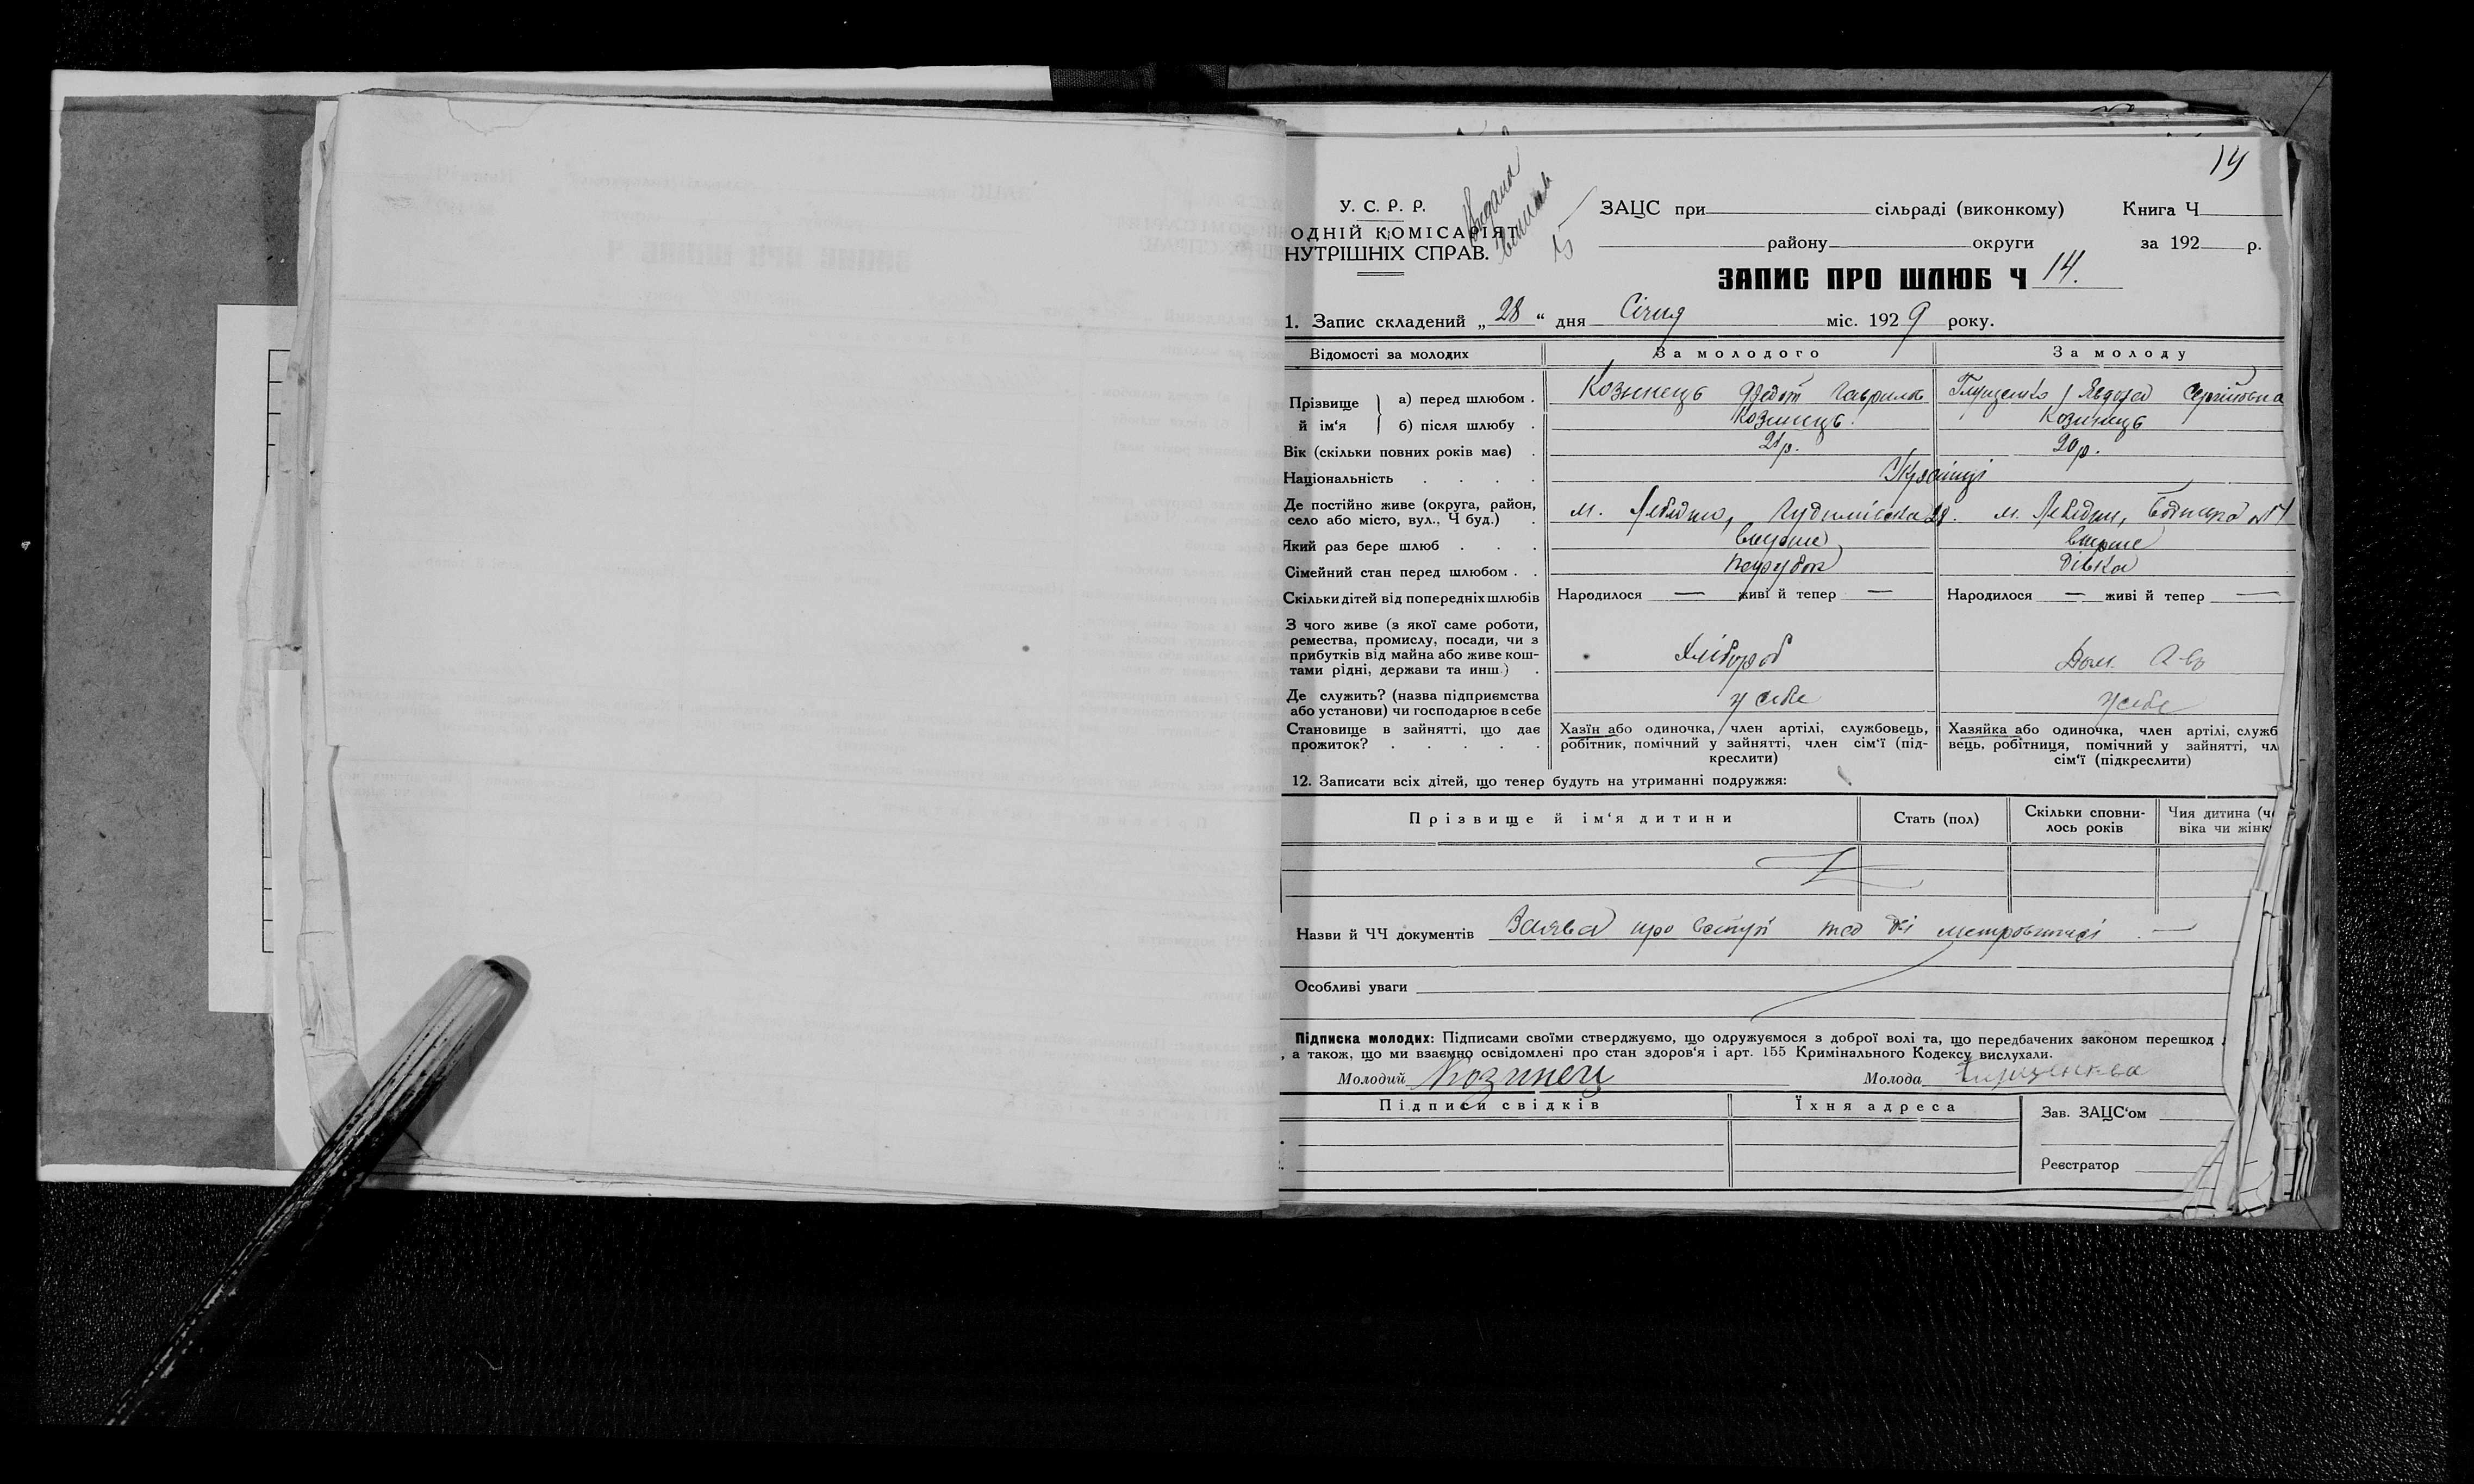 14
У. С. Р. Р.
ОДНІЙ КОМІСАРІЯТ
НУТРІШНІХ СПРАВ.
ЗАЦС при сільраді (виконкому) Книга Ч
району округи за 192 р.
ЗАПИС ПРО ШЛЮБ Ч 14.
1. Запис складений „28“ дня Січня міс. 1929 року.
Відомості за молодих За молодого За молоду
Прізвище й ім‘я а) перед шлюбом . Козинець Федот Гаврилов Глущенко Явдоха Сергіївна
б) після шлюбу . Козинець. Козинець
Вік (скільки повних років має) . 21р. 20р.
Національність . . . . Українці
Де постійно живе (округа, район,
село або місто, вул., Ч буд.) . м. Лебедин, 28. м. Лебедин,
Який раз бере шлюб . . . вперше вперше
Сімейний стан перед шлюбом . . парубок дівка
Скільки дітей від попередніх шлюбів Народилося — живі й тепер — Народилося — живі й тепер —
З чого живе (з якої саме роботи,
ремества, промислу, посади, чи з
прибутків від майна або живе кош-
тами рідні, держави та инш.) . Хлібороб Дом.
Де служить? (назва підприємства
або установи) чи господарює в себе у себе у себе
Становище в зайнятті, що дає
прожиток? . . . . .
Хазїн або одиночка, член артілі, службовець,
робітник, помічний у зайнятті, член сім‘ї (під-
креслити)
Хазяйка або одиночка, член артілі, служб
вець, робітниця, помічний у зайнятті, чл
сім‘ї (підкреслити)
12. Записати всіх дітей, що тепер будуть на утриманні подружжя:
Прізвище й ім‘я дитини Стать (пол) Скільки сповни-
лось років Чия дитина (чо
віка чи жінк
Назви й ЧЧ документів Заява про вступ та дві метровиписі —
Особливі уваги
Підписка молодих: Підписами своїми стверджуємо, що одружуємося з доброї волі та, що передбачених законом перешкод
, а також, що ми взаємно освідомлені про стан здоров‘я і арт. 155 Кримінального Кодексу вислухали.
Молодий Козинец Молода
Підписи свідків Їхня адреса Зав. ЗАЦС‘ом
Реєстратор